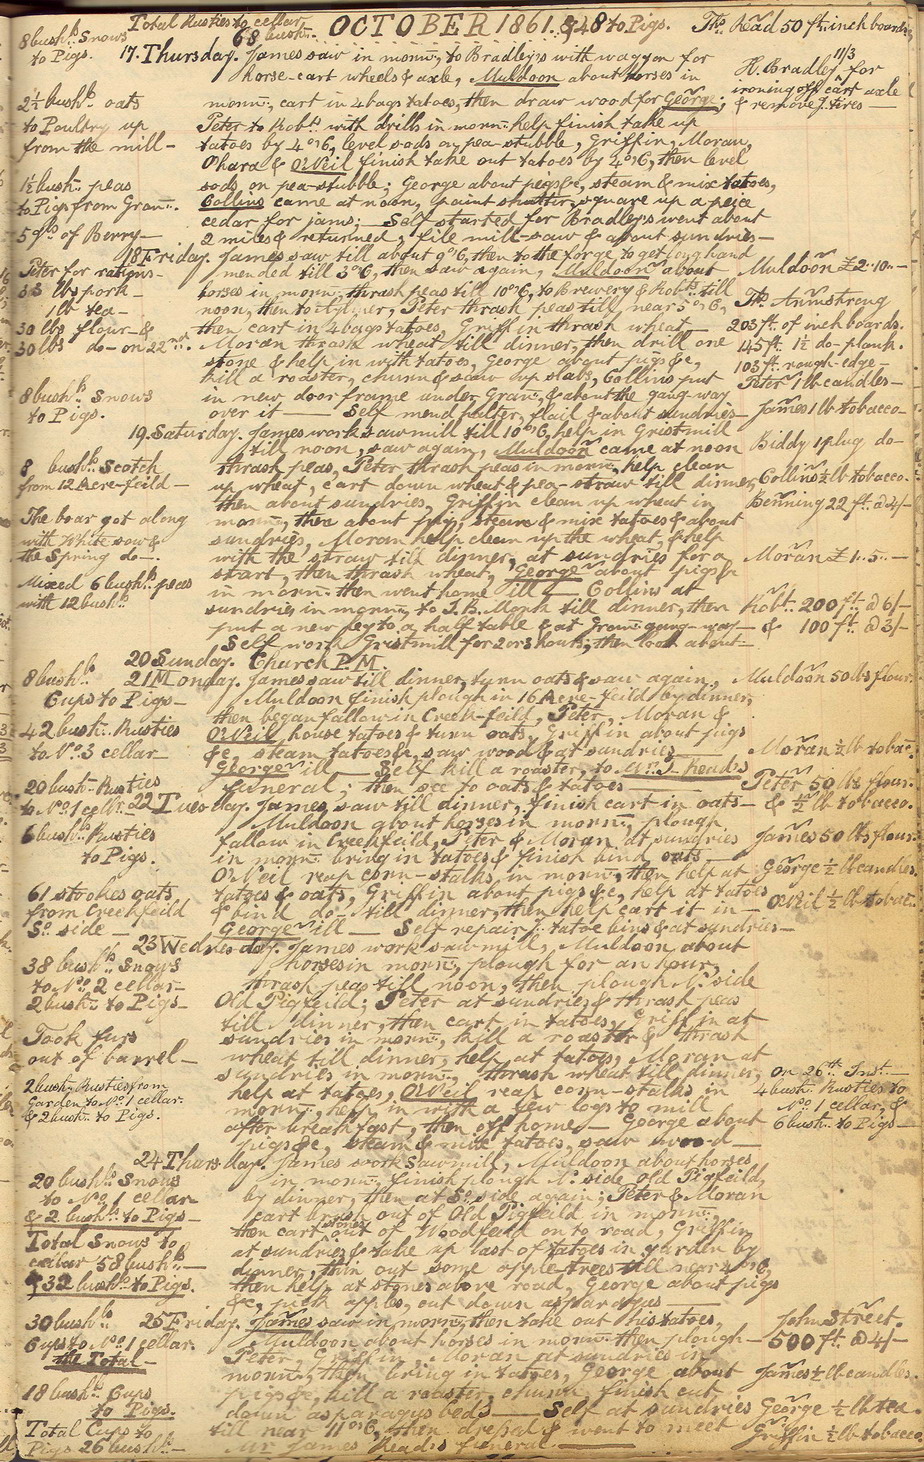 Total Rusties to cellar
68 bush.
OCTOBER 1861. & 48 to Pigs.
Ths. Read 50 ft. inch boards
8 bushls. Snows
to Pigs.
17. Thursday. James saw in morng., to Bradley's with waggon for
horse-cart wheels & axle, Muldoon about horses in
11/3
H. Bradley for
ironing off cart axle
& remove J. tires
2½ bushls. oats
to Poultry up
from the mill
mornng., cart in 4 bags tatoes, then draw wood for George;
Peter to Robts. with drills in morng. help finish take up
tatoes by 4 o'6, level sods on pea-stubble, Griffin, Moran,
Ohara & ONeil finish take out tatoes by 4 o'6, then level
1½ bush. peas
to Pigs from Gran.
sods on pea-stubble; George about pigs &c, steam & mix tatoes,
Collins came at noon, paint shutter, square up a peice
cedar for jams; Self started for Bradley's went about
5 qts. of Berry
2 miles & returned, file mill-saw & about sundries
18 Friday. James saw till about 9 o'6, then to the forge, to get long hand
Peter for rations
33 lbs pork
1 lb tea
30 lbs flour &
30 lbs do- on 22nd.
mended till 3 o'6, then saw again, Muldoon about
horses in morng., thrash peas till 10 o'6, to Brewery & Robts. till
noon, then to Aylmer, Peter thrash peas till near 5 o'6,
then cart in 4 bags tatoes, Griffin thrash wheat
Moran thrash wheat till dinner, then drill one
stone & help in with tatoes, George about pigs &c,
kill a roaster, churn & saw up slabs, Collins put
Muldoon £2..10..
Ths. Armstrong
203 ft. of inch boards.
145 ft. 1½ do- plank.
103 ft. rough-edge
Peter 1 lb candles
8 bushls. Snows
to Pigs.
in new door frame under Gran., & about the gang-way
over it Self mend halter, flail & about sundries
James 1 lb tobacco
19. Saturday. James work sawmill till 10 o'6, help in Gristmill
till noon, saw again, Muldoon came at noon
Biddy 1 plug do-
8 bushls. Scotch
from 12 Acre-feild
thrash peas, Peter thrash peas in morng., help clean
up wheat, cart down wheat & pea-straw till dinner,
then about sundries, Griffin clean up wheat in
Collins ½ lb tobacco.
Benning 22 ft. @ 4/-
The boar got along
with White sow &
the Spring do-.
morng., then about pigs, steam & mix tatoes & about
sundries, Moran help clean up the wheat, & help
with the straw till dinner, at sundries for a
start, then thrash wheat, George about pigs &c
Moran £1..5..
Mixed 6 bushls. peas
with 12 bushls.
in morng. then went home ill Collins at
sundries in morng., to J.B. till dinner, then
put a new leg to a half table & at Gran. gang-way
Self work Gristmill for 2 or 3 hours, then look about
Robt. 200 ft. @ 6/-
& 100 ft. @ 3/-
20 Sunday. Church P.M.
8 bushls.
Cups to Pigs
21 Monday. James saw till dinner, turn oats & saw again,
Muldoon finish plough in 16 Acre-feild by dinner,
then began fallow in Creek-feild, Peter, Moran &
Muldoon 50 lbs flour.
42 bush. Rusties
to No. 3 cellar
ONeil house tatoes & turn oats, Griffin about pigs
&c, steam tatoes &c, saw wood & at sundries
George ill Self kill a roaster, to Mr. J. Read's
funeral, then see to oats & tatoes
Moran ½ lb tobac.
Peter 50 lbs flour
& ½ lb tobacco.
20 bush. Rusties
to No. 1 cellr.
22 Tuesday. James saw till dinner, finish cart in oats
Muldoon about horses in morng., plough
6 bushls. Rusties
to Pigs.
fallow in Creekfeild, Peter & Moran at sundries
in morng. bring in tatoes & finish bind oats
ONeil reap corn-stalks, in morng., then help at
James 50 lbs flour.
George ½ lb candles.
61 stookes oats
from Creekfeild
So. side
tatoes & oats, Griffin about pigs &c, help at tatoes
& bind do- till dinner, then help cart it in
George ill Self repair tatoe bins & at sundries
ONeil ½ lb tobac.
23 Wednesday. James work sawmill, Muldoon about
38 bushls. Snows
to No. 2 cellar
2 bush. to Pigs
horses in morng., plough for an hour,
thrash peas till noon, then plough No. side
Old Pigfeild; Peter at sundries & thrash peas
till dinner, then cart in tatoes, Griffin at
Took furs
out of barrel
sundries in morng., kill a roaster & thrash
wheat till dinner, help at tatoes, Moran at
sundries in morng., thrash wheat till dinner,
2 bush. Rusties from
Garden to No. 1 cellar
& 2 bush. to Pigs.
help at tatoes, ONeil reap corn-stalks in
morng., help in with a few logs to mill
after breakfast, then off home George about
pigs &c, steam & mix tatoes, saw wood
on 26th. Inst.
4 bush. Rusties to
No. 1 cellar, &
6 bush. to Pigs
24 Thursday. James work sawmill, Muldoon about horses
20 bushls. Snows
to No. 1 cellar
& 2 bushls. to Pigs
in morng., finish plough No. side Old Pigfeild,
by dinner, then at So. side again; Peter & Moran
cart brush out of Old Pigfeild in morng.,
Total Snows to
cellar 58 bushls
& 32 bushls. to Pigs.
then cart stones out of Woodfeild on to road, Griffin
at sundries & take up last of tatoes in garden by
dinner, thin out some apple-trees till near 4 o'6,
then help at stones above road, George about pigs
&c, pick apples, cut down asparagus
30 bushls.
Cups to No. 1 cellar.
the Total
25 Friday. James saw in morng., then take out his tatoes,
Muldoon about horses in morng. then plough
Peter, Griffin, Moran at sundries in
morng., then bring in tatoes, George about
John Street.
500 ft. @ 4/-
James ½ lb candles.
18 bushls. Cups
to Pigs.
pigs &c, kill a roaster, churn, finish cut
down asparagus beds Self at sundries
George ½ lb tea.
Total Cups to
Pigs 26 bushls.
till near 11 o'6, then dressed & went to meet
Mr James Read's funeral
Griffin ½ lb tobacco.